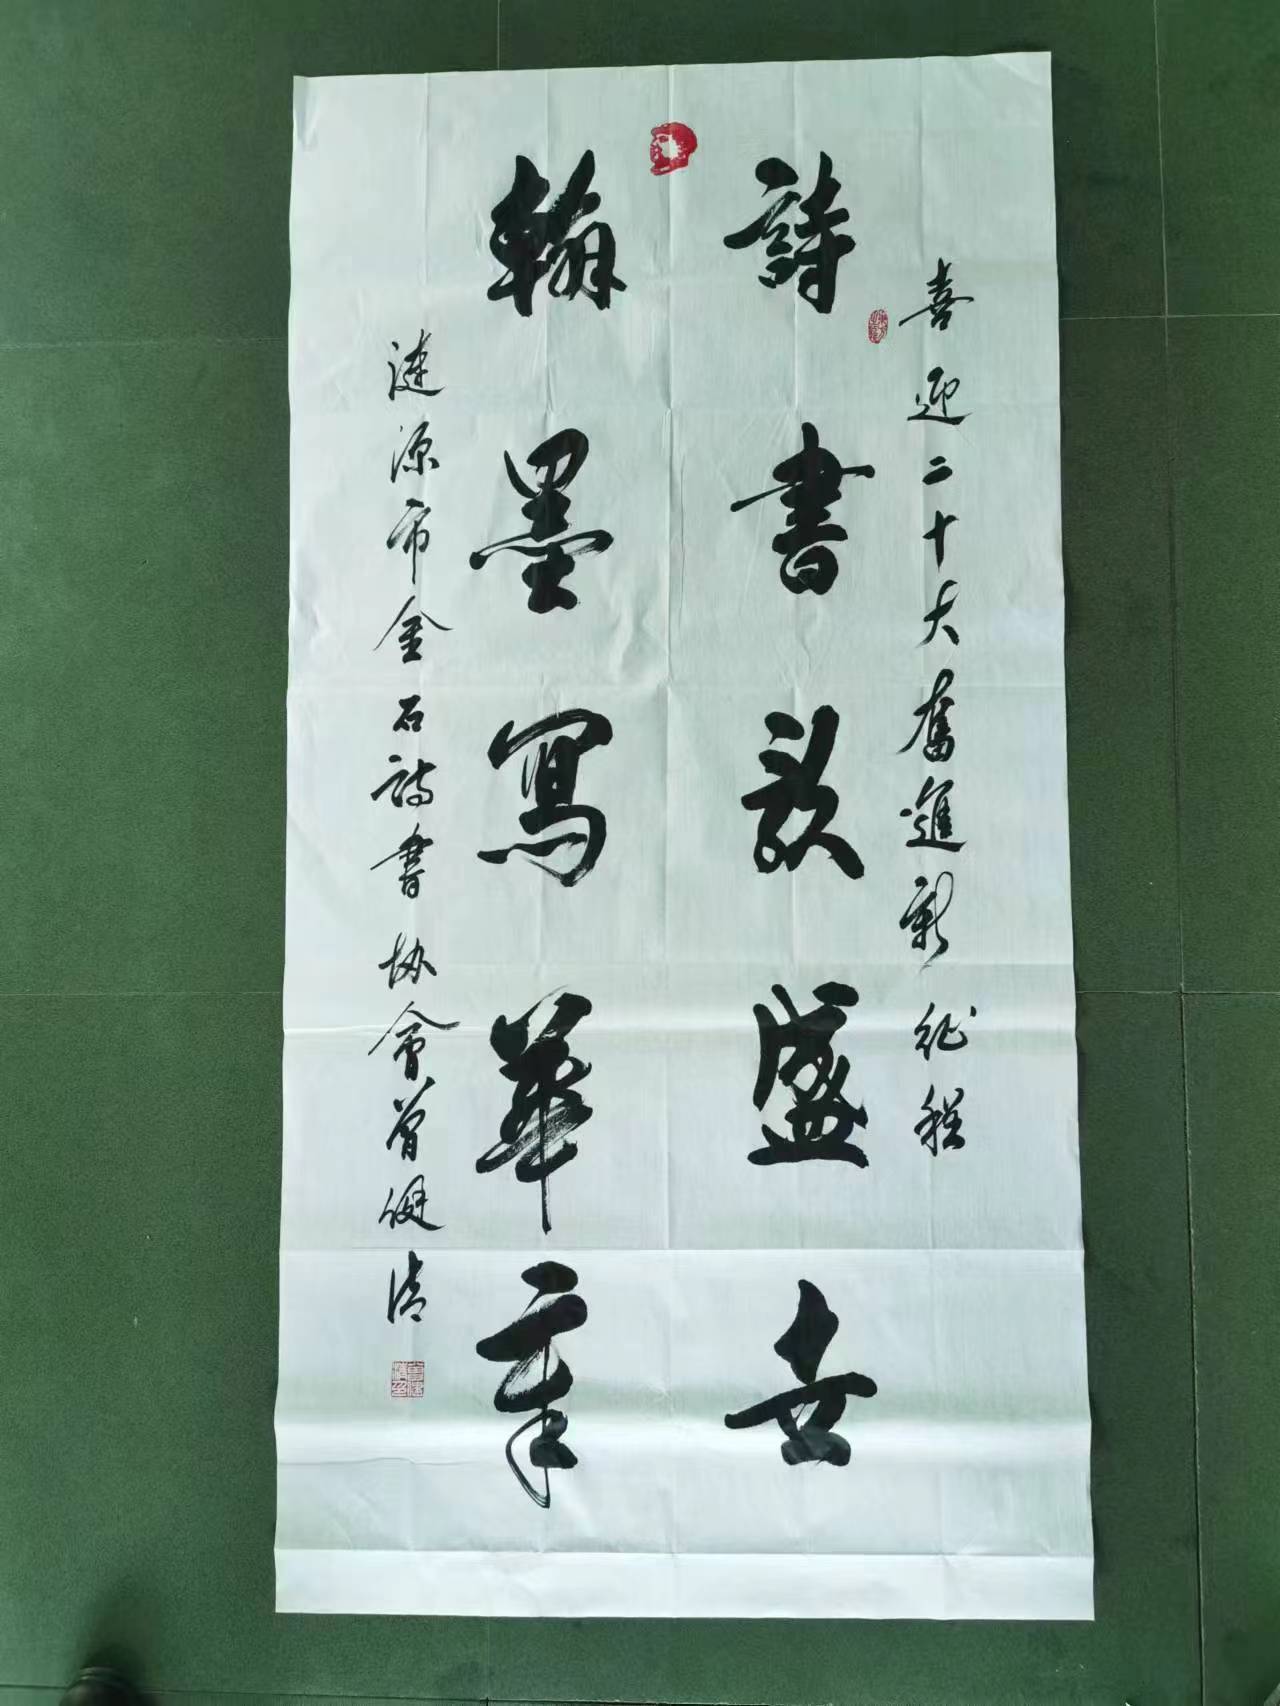 喜迎二十大奮進新征程
詩書敬盛世
翰墨寫華章
涟源市金石詩書协會曾健清